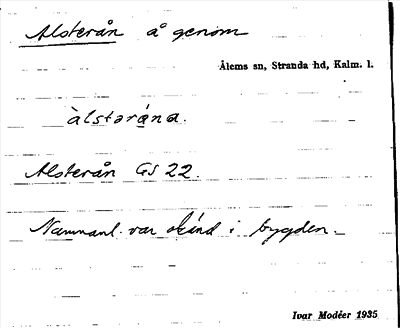 Alsterån å genom
Ålems sn, Stranda hd, Kalm. l.
àlstəránа.
Alsterån GS 22.
Namnanl. var okänd i bygden.
Ivar Modéer 1935